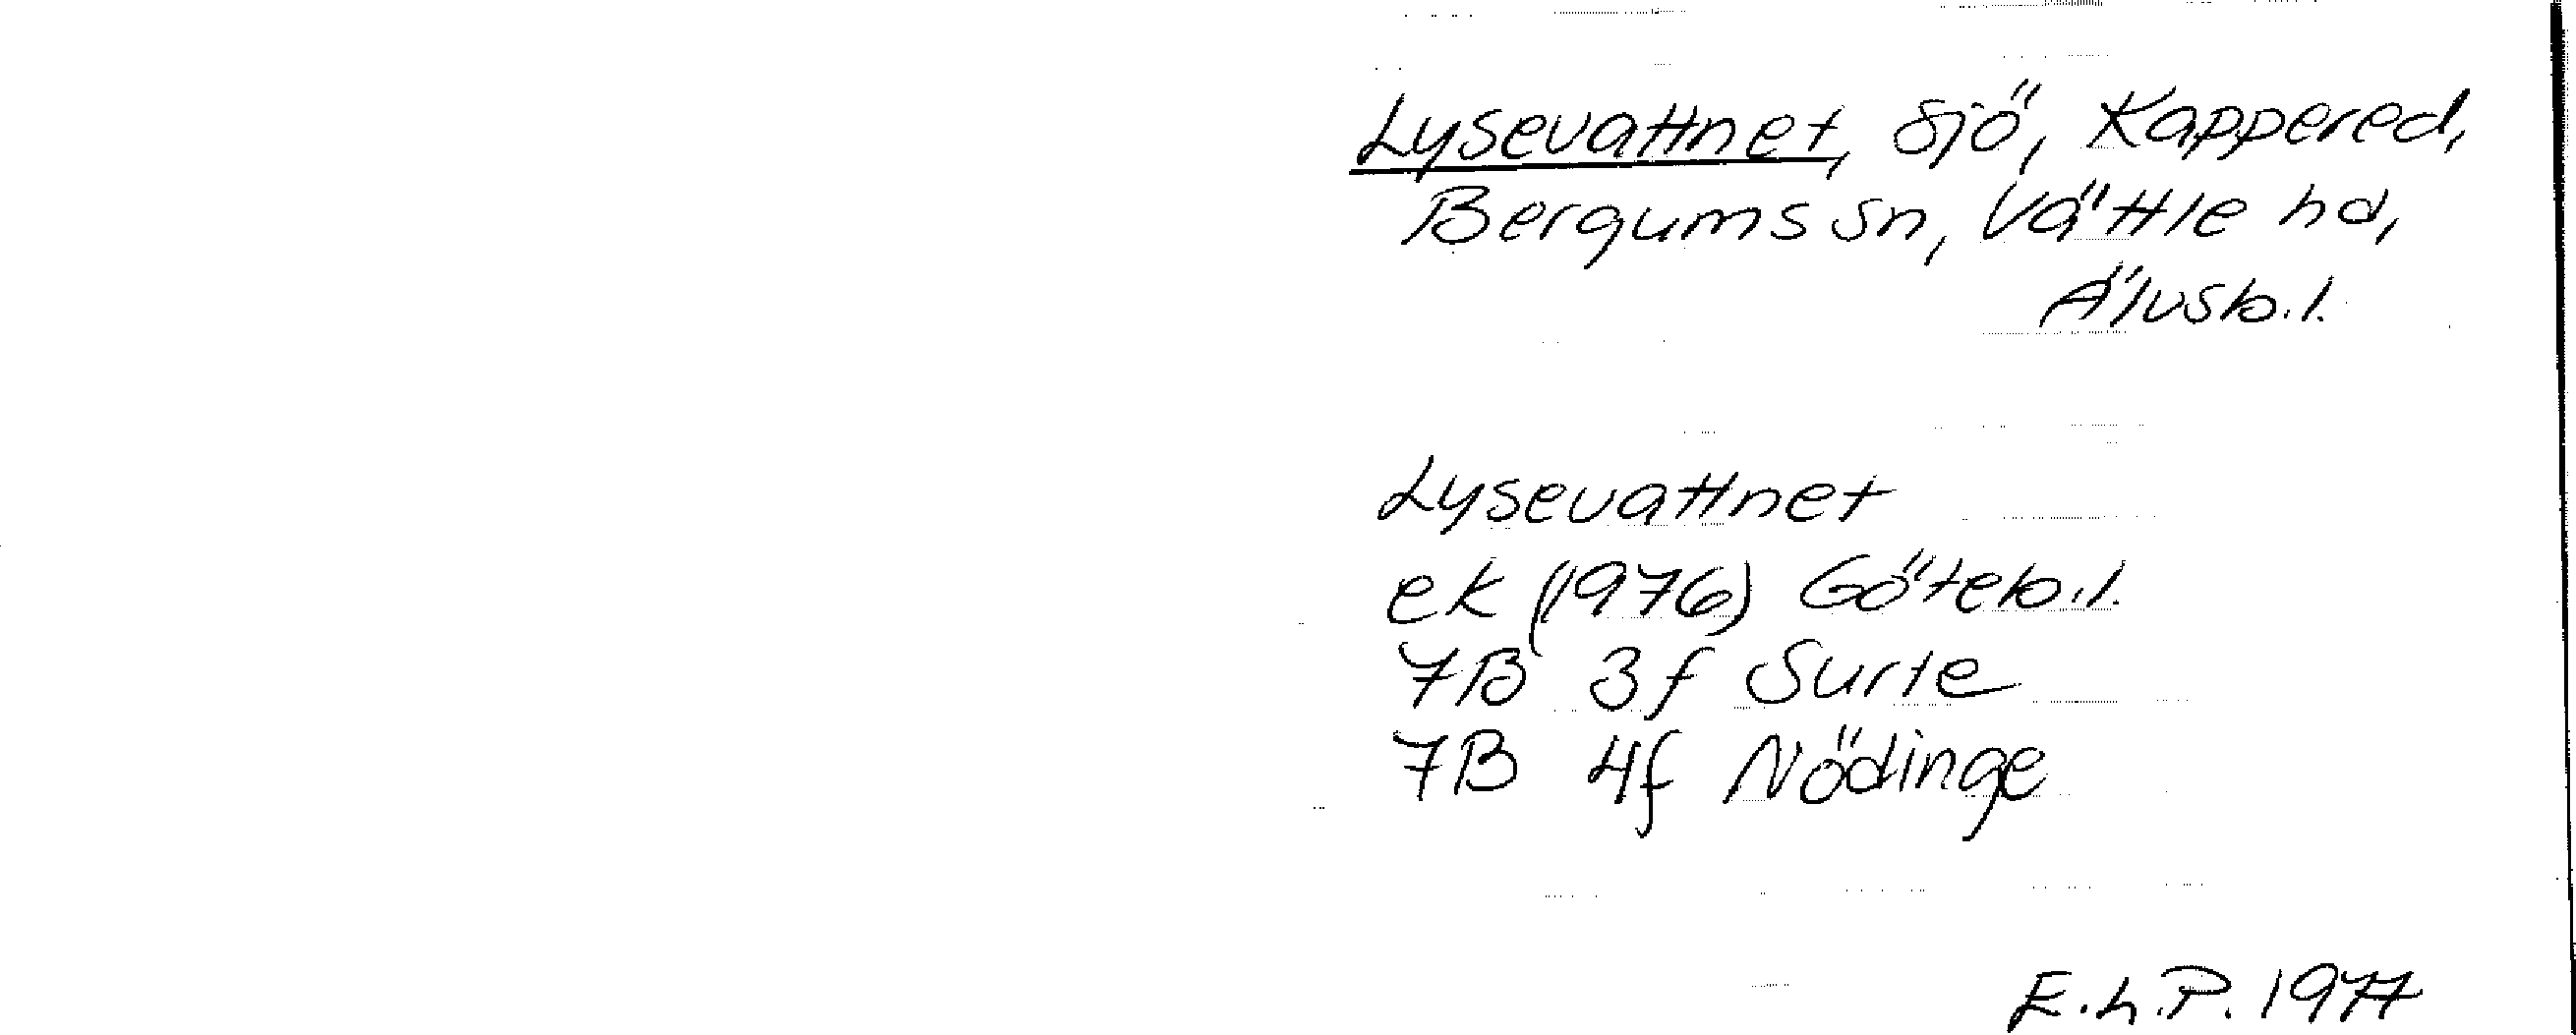 Lysevattnet, sjö, Kappered,
Bergums sn, Vättle hd,
Älvsb. l.
Lysevattnet
ek (1976) Göteb. l.
7B 3f Surte
7B 4f Nödinge
E.L.P. 1977